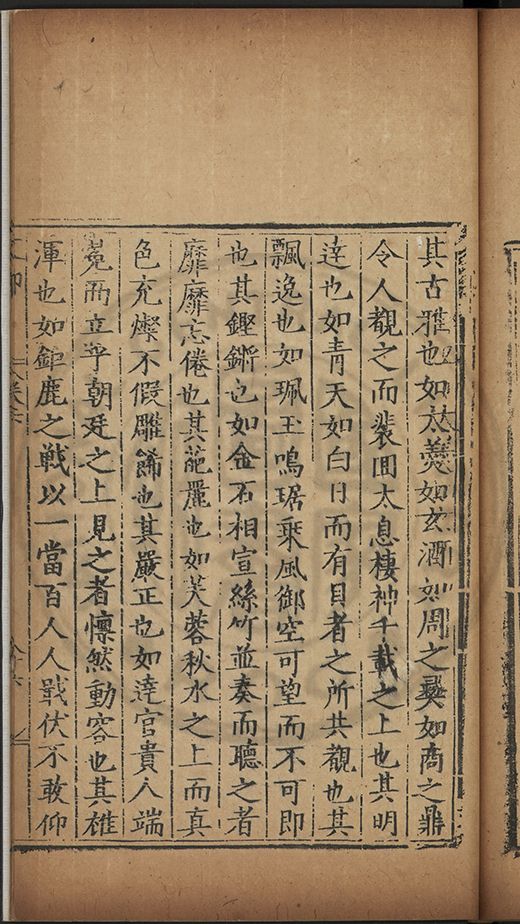 其古雅也如太羹如玄酒如周之彝如商之鼎
令人覩之而裴囬太息棲神千載之上也其明
逹也如青天如白日而有目者之所共覩也其
飄逸也如珮玉鳴琚乘風御空可望而不可即
也其鏗鏘也如金石相宣絲竹並奏而聽之者
靡靡忘倦也其葩麗也如芙蓉秋水之上而真
色充燦不假雕餙也其嚴正也如達官貴人端
冕而立乎朝廷之上見之者懔然動容也其雄
渾也如鉅鹿之戰以一當百人人戰伏不敢仰